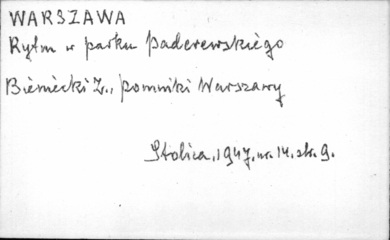 WARSZAWA
Rytm w parku Paderewskiego
Bieniecki Z., pomniki Warszawy
Stolica, 1947, nr. 14. str. 9.